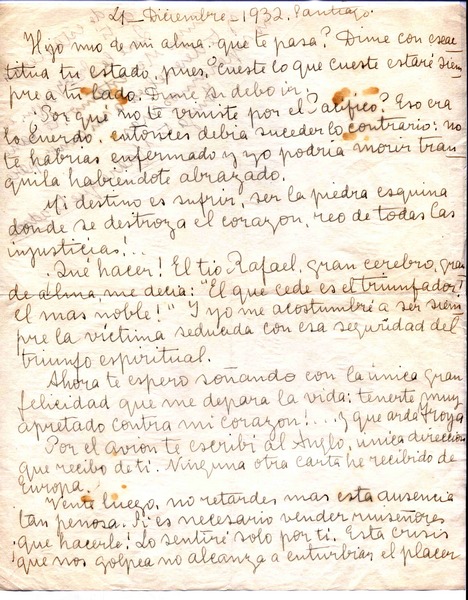 4 - Diciembre - 1932. Santiago.
Hijo mio de mi alma: que te pasa? Dime con exac-
titud tu estado, pues, cueste lo que cueste estaré siem
pre a tu lado. Dime si debo ir!
¿Por qué no te viniste por el Pacífico? Eso era
lo cuerdo, entonces debia suceder lo contrario: no
te habrias enfermado y yo podria morir tran
quila habiéndote abrazado.
Mi destino es sufrir, ser la piedra esquina
donde se destroza el corazon, reo de todas las
injusticias!..
Qué hacer! El tio Rafael, gran cerebro, gran
de alma, me decia: "El que cede es el triunfador!
el mas noble!" Y yo me acostumbré a ser siem
pre la víctima seducida con esa seguridad del
triunfo espiritual.
Ahora te espero soñando con la única gran
felicidad que me depara la vida: tenerte muy
apretado contra mi corazon!... y que arda Troya
Por el avion te escribí al Anglo, única direccion
que recibo de ti. Ninguna otra carta he recibido de
Europa.
Vente luego, no retardes mas esta ausencia
tan penosa. Si es necesario vender ruiseñores
que hacerle! Lo sentiré solo por ti. Esta crisis
que nos golpea no alcanza a enturbiar el placer